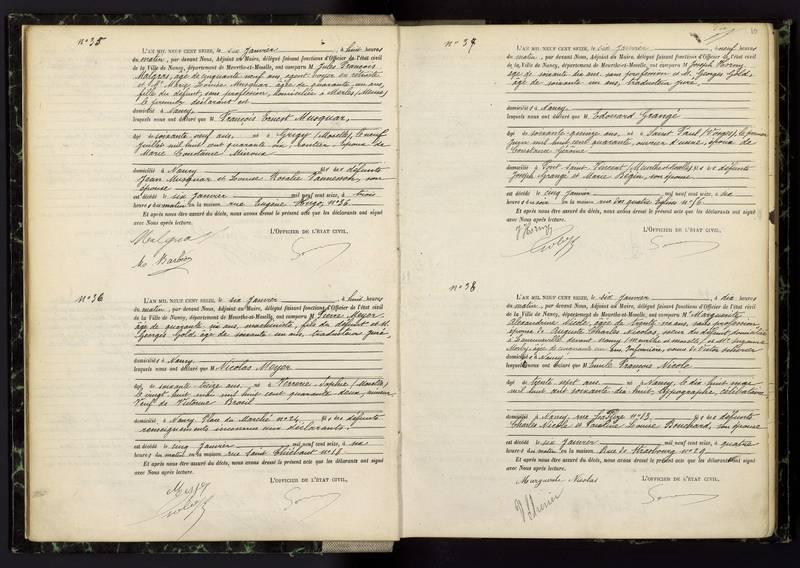 n° 35
L'AN MIL NEUF CENT SEIZE, le six Janvier, à huit heures
du matin, par devant Nous, Adjoint au Maire, délégué faisant fonctions d'Officier de l'état civil
de la Ville de Nancy, département de Meurthe-et-Moselle, ont comparu M. Jules François
Malgras, âgé de cinquante neuf ans, agent voyer en retraite
et Mary Louise Musquar, âgée de quarante un ans,
fille du défunt, sans profession, domiciliée à
le premier déclarant est
domicilié à Nancy
lesquels nous ont déclaré que M. François Ernest Musquar,
âgé de soixante neuf ans, né à Grigy (Moselle), le neuf
Juillet mil huit cent quarante six, rentier, époux de
Marie Constance
domicilié à Nancy fils des défunts
Jean Musquar et Louise Rosalie son
épouse
est décédé le six Janvier mil neuf cent seize, à trois
heures du matin en la maison rue Eugène Hugo, n° 36
Et après nous être assuré du décès, nous avons dressé le présent acte que les déclarants ont signé
avec Nous après lecture.
L'OFFICIER DE L'ÉTAT CIVIL,
Malgras
n° 36
L'AN MIL NEUF CENT SEIZE, le six Janvier, à huit heures
du matin, par devant Nous, Adjoint au Maire, délégué faisant fonctions d'Officier de l'état civil
de la Ville de Nancy, département de Meurthe-et-Moselle, ont comparu M. Pierre Meyer
âgé de quarante six ans, machiniste, fils du défunt et M.
Georges Gold âgé de soixante un ans, traducteur juré,
domiciliés à Nancy
lesquels nous ont déclaré que M. Nicolas Meyer
âgé de soixante treize ans, né à Verrerie Sophie (Moselle)
le vingt huit mai mil huit cent quarante deux, mineur
Veuf de Victorine Brosil
domicilié à Nancy Place du Marché n° 24 fils des défunts
renseignements inconnus aux déclarants.
est décédé le cinq Janvier mil neuf cent seize, à six
heures du matin en la maison rue Saint Thiébaut n° 18
Et après nous être assuré du décès, nous avons dressé le présent acte que les déclarants ont signé
avec Nous après lecture.
L'OFFICIER DE L'ÉTAT CIVIL,
n° 37
L'AN MIL NEUF CENT SEIZE, le six Janvier, à neuf heures
du matin, par devant Nous, Adjoint au Maire, délégué faisant fonctions d'Officier de l'état civil
de la Ville de Nancy, département de Meurthe-et-Moselle, ont comparu M. Joseph
âgé de soixante dix ans, sans profession et M. Georges Gold,
âgé de soixante un ans, traducteur juré,
domiciliés à Nancy
lesquels nous ont déclaré que M. Edouard Grangé
âgé de soixante quinze ans, né à Saint Paul (Vosges), le premier
Juin mil huit cent quarante, ouvrier d'usine, époux de
Constance Gérome
domicilié à Pont Saint Vincent (Meurthe et Moselle) fils de défunts
Joseph Grangé et Marie Bégin, son épouse
est décédé le cinq Janvier mil neuf cent seize, à six
heures du soir en la maison rue des quatre Eglises n° 76
Et après nous être assuré du décès, nous avons dressé le présent acte que les déclarants ont signé
avec Nous après lecture.
L'OFFICIER DE L'ÉTAT CIVIL,
n° 38
L'AN MIL NEUF CENT SEIZE, le six Janvier, à dix heures
du matin, par devant Nous, Adjoint au Maire, délégué faisant fonctions d'Officier de l'état civil
de la Ville de Nancy, département de Meurthe-et-Moselle, ont comparu Me Marguerite
Alexandrine Nicole, âgée de trente six ans, sans profession
épouse de Auguste Charles Nicolas, sœur du défunt, domiciliée
à Tomblaine devant Nancy (Meurthe et Moselle) et Me Suzanne
âgée de cinquante un ans, Infirmière, veuve de
domiciliée à Nancy
lesquelles nous ont déclaré que M. Emile François Nicole
âgé de trente sept ans né à Nancy, le dix huit mai
mil huit cent soixante dix huit, typographe, célibataire
domicilié à Nancy, rue La Flize n° 13, fils des défunts
Charles Nicole et Louise Bouchard, son épouse
est décédé le six Janvier mil neuf cent seize, à quatre
heures du matin en la maison Rue de Strasbourg n° 29
Et après nous être assuré du décès, nous avons dressé le présent acte que les déclarants ont signé
avec Nous après lecture.
L'OFFICIER DE L'ÉTAT CIVIL,
Marguerite Nicolas